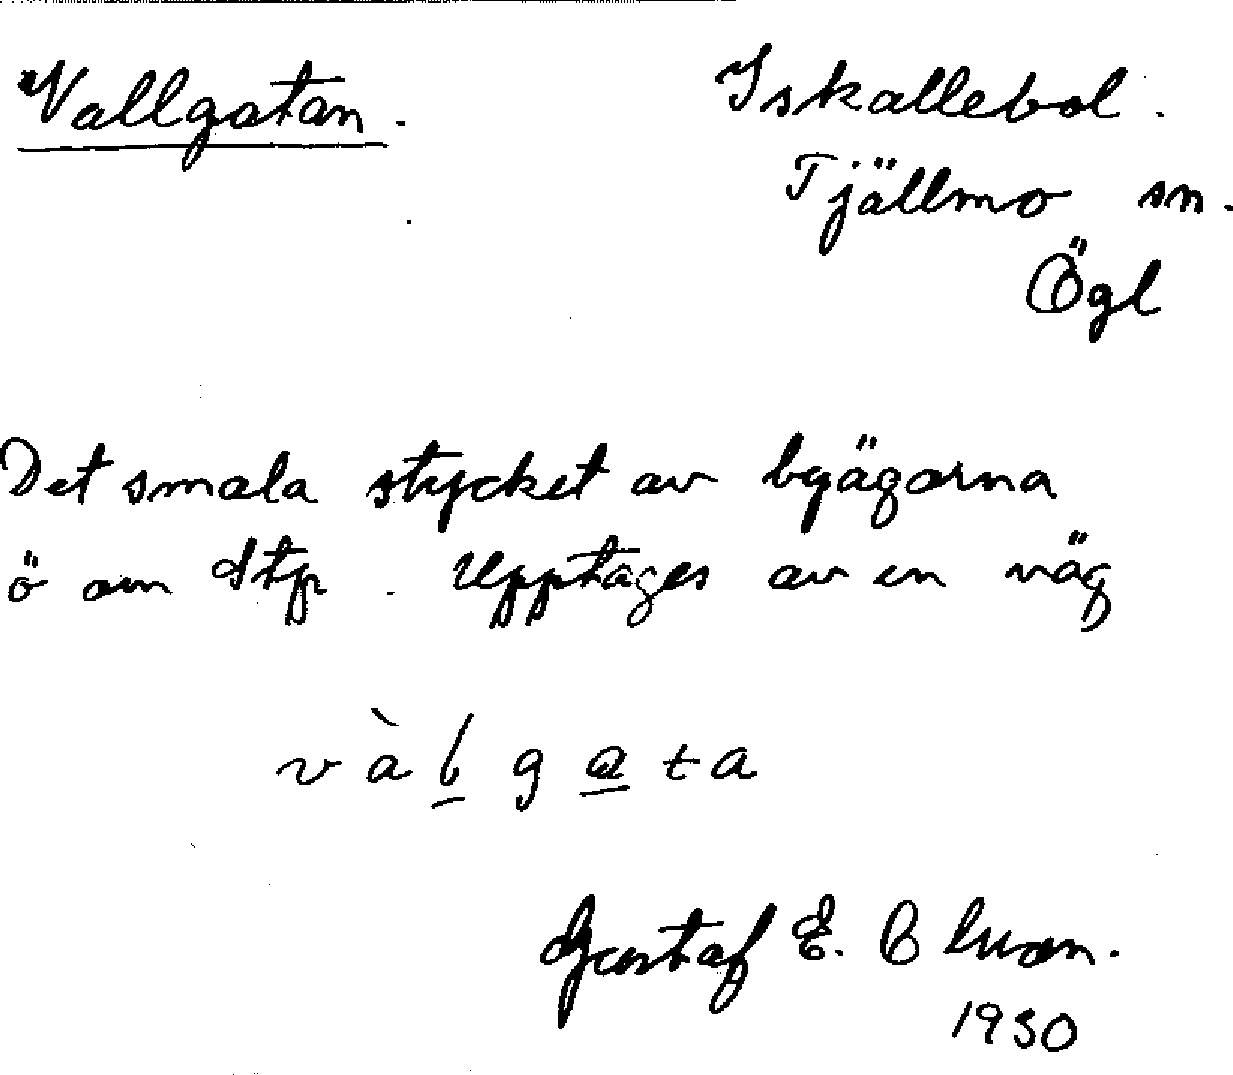 Vallgatan. Iskallebol.
Tjällmo sn.
Ögl
Det smala stycket av byägorna
ö om Stp. Upptages av en väg
và l g a ta
Gustaf E. B
1930